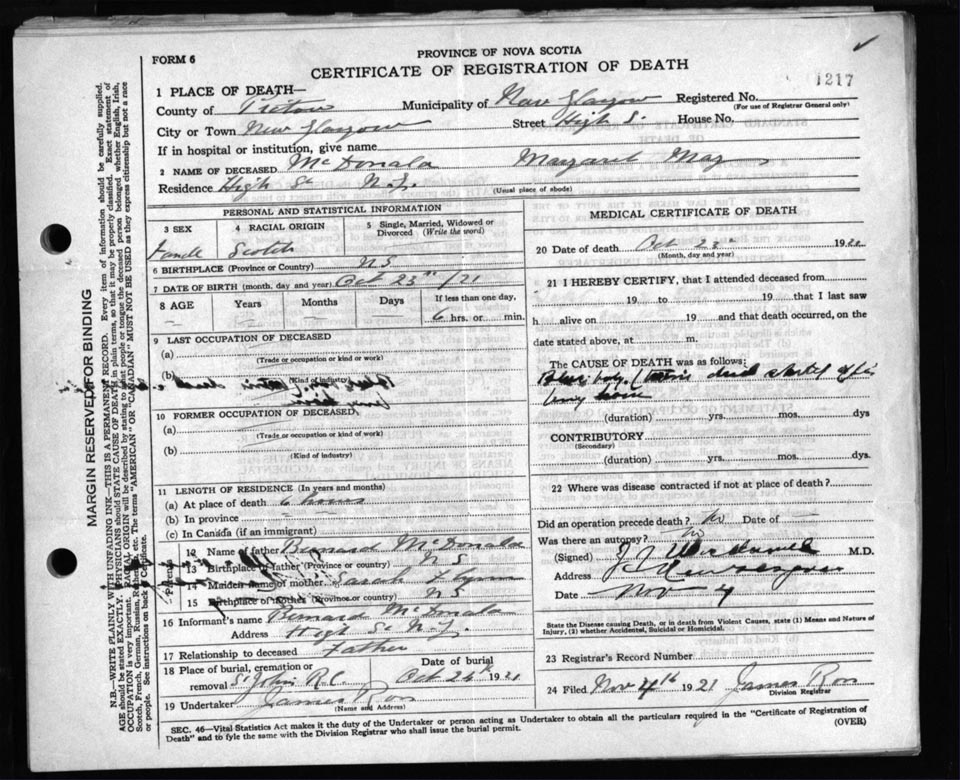 FORM 6
PROVINCE OF NOVA SCOTIA
CERTIFICATE OF REGISTRATION OF DEATH
1217
1 PLACE OF DEATH—
County of Pictou Municipality of New Glasgow Registered No.
(For use of Registrar General only)
City or Town New Glasgow Street High St. House No.
If in hospital or institution, give name
2 NAME OF DECEASED McDonald Margaret May
Residence High St N.G. (Usual place of abode)
PERSONAL AND STATISTICAL INFORMATION
3 SEX 4 RACIAL ORIGIN 5 Single, Married, Widowed or Divorced (Write the word)
Female Scotch
6 BIRTHPLACE (Province or Country) N S
7 DATE OF BIRTH (month, day and year) Oct 23rd /21
8 AGE Years Months Days If less than one day,
— — — 6 hrs. or min.
9 LAST OCCUPATION OF DECEASED
(a)
(Trade or occupation or kind or work)
(b)
(Kind of industry)
10 FORMER OCCUPATION OF DECEASED
(a)
(Trade or occupation or kind of work)
(b)
(Kind of industry)
11 LENGTH OF RESIDENCE (In years and months)
(a) At place of death 6 hours
(b) In province
(c) In Canada (if an immigrant)
Parents
12 Name of father Bernard McDonald
13 Birthplace of father (Province or country) N S
14 Maiden name of mother Sarah Flynn
15 Birthplace of mother (Province or country) N S
16 Informant's name Bernard McDonald
Address High St N.G.
17 Relationship to deceased Father
18 Place of burial, cremation or removal St John R.C. Date of burial Oct 24th 1921
19 Undertaker James Ross
(Name and Address)
MEDICAL CERTIFICATE OF DEATH
20 Date of death Oct 23rd 192
(Month, day and year)
21 I HEREBY CERTIFY, that I attended deceased from
19 to 19 that I last saw
h alive on 19 and that death occurred, on the
date stated above, at m.
The CAUSE OF DEATH was as follows:
Blue baby. dead shortly after
being born
(duration) yrs. mos. dys
CONTRIBUTORY
(Secondary)
(duration) yrs. mos. dys.
22 Where was disease contracted if not at place of death?
Did an operation precede death? No Date of —
Was there an autopsy? No
(Signed) M.D.
Address New Glasgow
Date Nov 4
State the Disease causing Death, or in death from Violent Causes, state (1) Means and Nature of Injury, (2) whether Accidental, Suicidal or Homicidal.
23 Registrar's Record Number
24 Filed Nov 4th 1921 James Ross
Division Registrar
SEC. 46—Vital Statistics Act makes it the duty of the Undertaker or person acting as Undertaker to obtain all the particulars required in the "Certificate of Registration of
Death" and to fyle the same with the Division Registrar who shall issue the burial permit. (OVER)
MARGIN RESERVED FOR BINDING
N.B.—WRITE PLAINLY WITH UNFADING INK—THIS IS A PERMANENT RECORD. Every item of information should be carefully supplied.
AGE should be stated EXACTLY. PHYSICIANS should STATE CAUSE OF DEATH in plain terms, so that it may be properly classified. Exact statement of
OCCUPATION is very important. RACIAL ORIGIN will be described by stating to what people or tongue the deceased person belonged whether English, Irish,
Scotch, French, German, Russian, Ruthenian, etc. The terms "AMERICAN" OR "CANADIAN" MUST NOT BE USED as they express citizenship but not a race
or people. See instructions on back of Certificate.